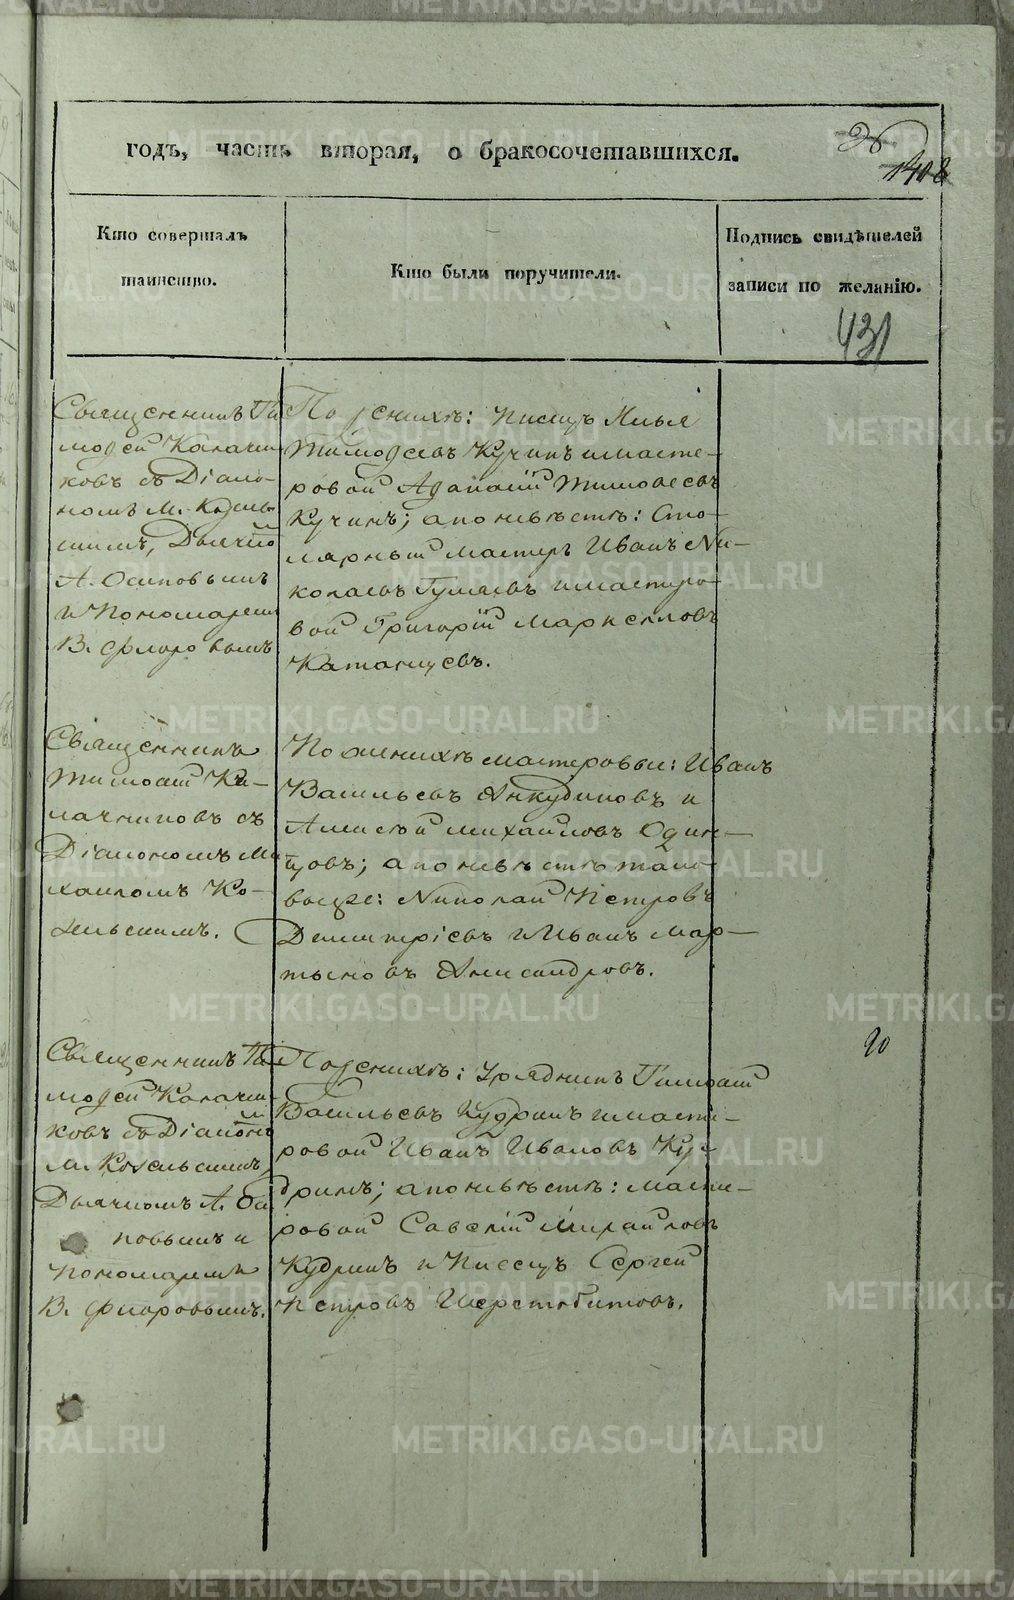 годъ, часть вторая, о бракосочетавшихся.
1408
Кто совершалъ
таинство.
Кто были поручители.
Подпись свидѣтелей
записи по желанію.
431
Священникъ Ти
моѳей Калачни
ковъ съ Діако-
номъ М. Козель
скимъ, Дьячко
А. Осиповымъ
и Пономаремъ
В. Флоровымъ
По женихѣ: писецъ Илья
Тимоѳеевъ Кучинъ и масте-
ровой Аѳанасій Тимоѳеевъ
Кучинъ; а по невѣстѣ: Сто-
лярный мастеръ Иванъ Ни-
колаевъ Гуляевъ и мастеро-
вой Григорій Маркеловъ
Катанцевъ.
Священникъ
Тимоѳей Ка-
лачниковъ съ
Діакономъ Ми
хаиломъ Ко-
зельскимъ.
По женихѣ мастеровые: Иванъ
Васильевъ Анкудиновъ и
Алексѣй Михайловъ Один-
цовъ; а по невѣстѣ тако-
выеже: Николай Петровъ
Димитріевъ и Иванъ Мар-
тыновъ Александровъ.
Священникъ Ти
моѳей Калачни-
ковъ съ Діаконо
М. Козельскимъ,
Дьячкомъ А. Оси
повымъ и
Пономаремъ
В. Флоровымъ.
По женихѣ: Урядникъ Тимоѳей
Васильевъ Кудринъ и масте-
ровой Иванъ Ивановъ Ку-
дринъ; а по невѣстѣ: масте-
ровой Савелій Михайловъ
Кудринъ и Писецъ Сергей
Петровъ Шерстобитовъ.
20
METRIKI.GASO-URAL.RU